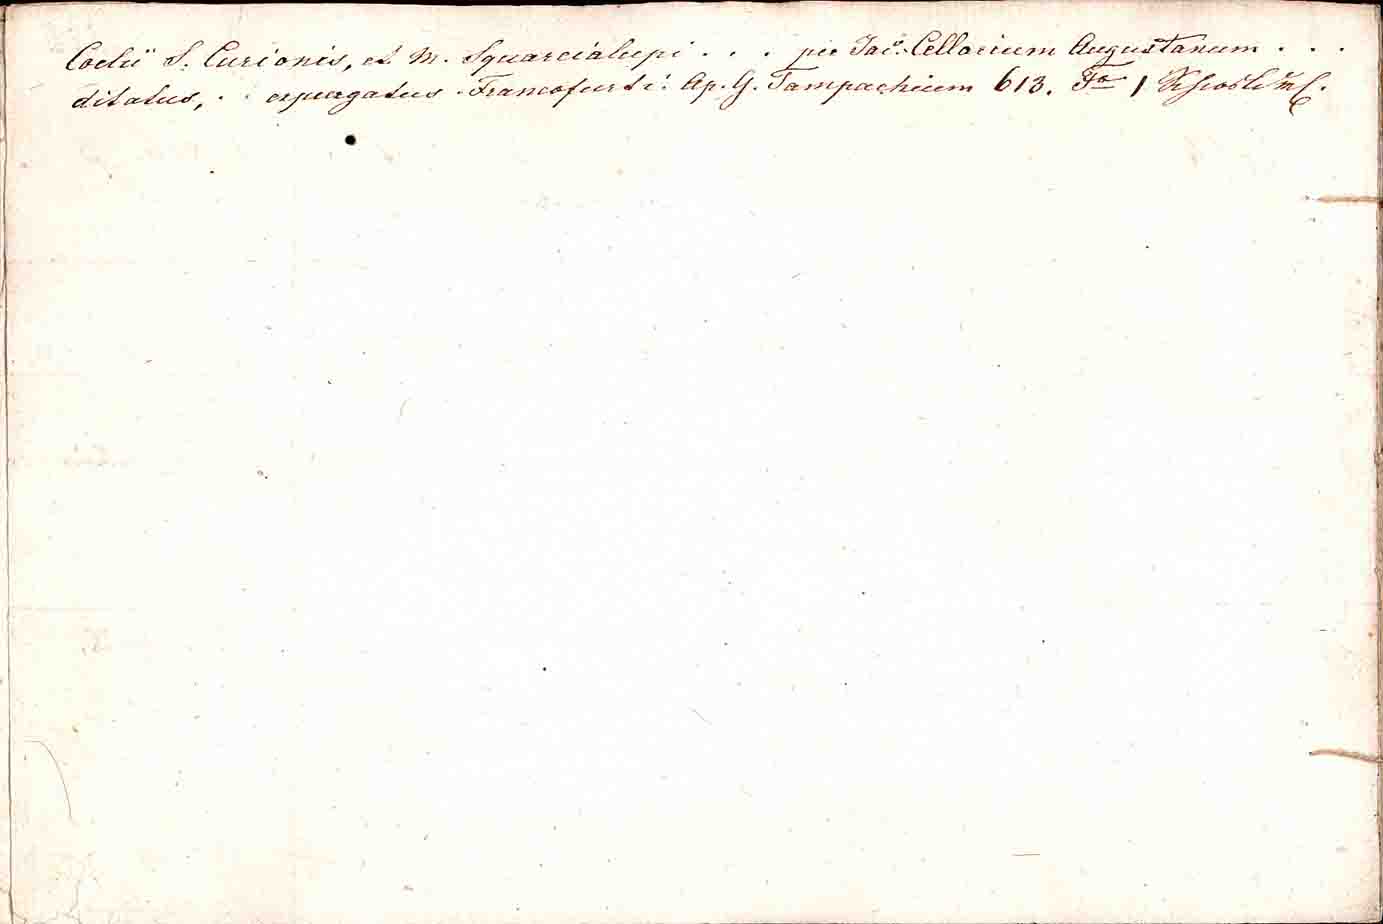 Coelii S. Curionis, et M. Squarcialupi . . . per Jac. Cellarium Augustanum . . .
ditatus, . . expurgatus . Francofurti: Ap. G. Tampachium 613. Fo 1